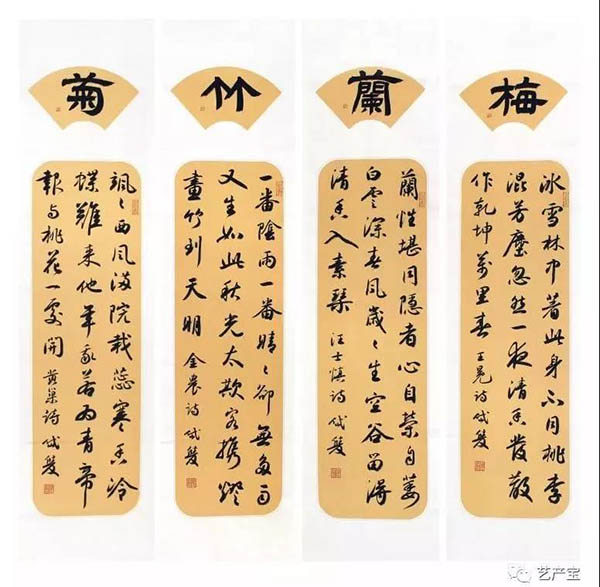 梅
冰雪林中著此身不同桃李
混芳塵忽然一夜清香發散
作乾坤萬里春 王冕詩
蘭
蘭性堪同隱者心自榮自萎
白雲深春風歲々生空谷留得
清香入素琴 汪士慎詩
竹
一番陰雨一番晴々卻無多雨
又生如此秋光太欺客攜燈
畫竹到天明 金農詩
菊
颯々西風滿院栽蕊寒香冷
蝶難來他年我若為青帝
報與桃花一處開 黃巢詩
艺产宝